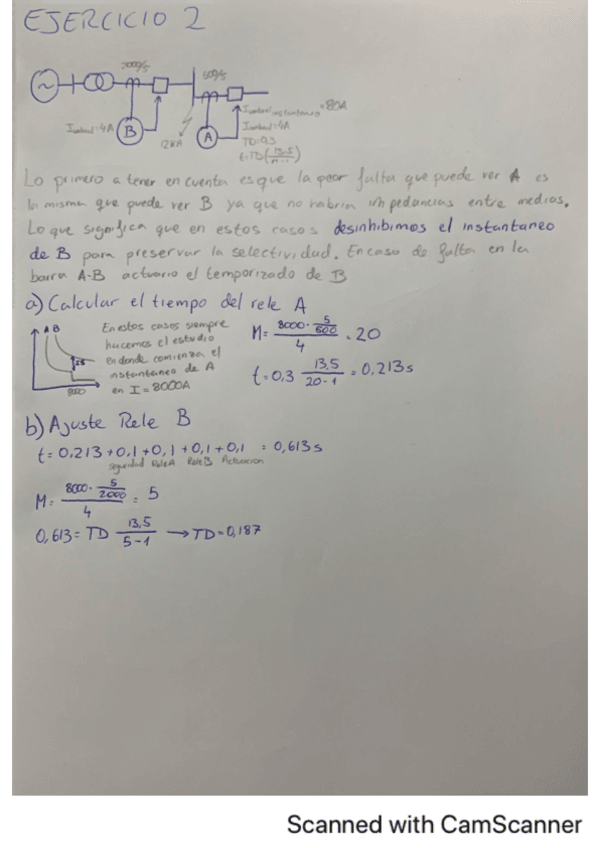 EJERCICIO 2
2000/5
500/5
Iumbral instantaneo = 80A
Iumbral = 4A
B
12kA
A
Iumbral = 4A
TD = 0,3
t = TD (13,5 / M-1)
Lo primero a tener en cuenta es que la peor falta que puede ver A es
la misma que puede ver B ya que no habria impedancias entre medias.
Lo que significa que en estos casos desinhibimos el instantaneo
de B para preservar la selectividad. En caso de falta en la
barra A-B actuario el temporizado de B
a) Calcular el tiempo del rele A
A B
En estos casos siempre
hacemos el estudio
en donde comienza el
instantaneo de A
en I = 8000A
8000
M = 8000 · 5/500 / 4 = 20
t = 0,3 13,5 / 20-1 = 0,213s
b) Ajuste Rele B
t = 0,213 + 0,1 + 0,1 + 0,1 + 0,1 = 0,613s
Seguridad Rele A Rele B Actuacion
M = 8000 · 5/2000 / 4 = 5
0,613 = TD 13,5 / 5-1 → TD = 0,187
Scanned with CamScanner